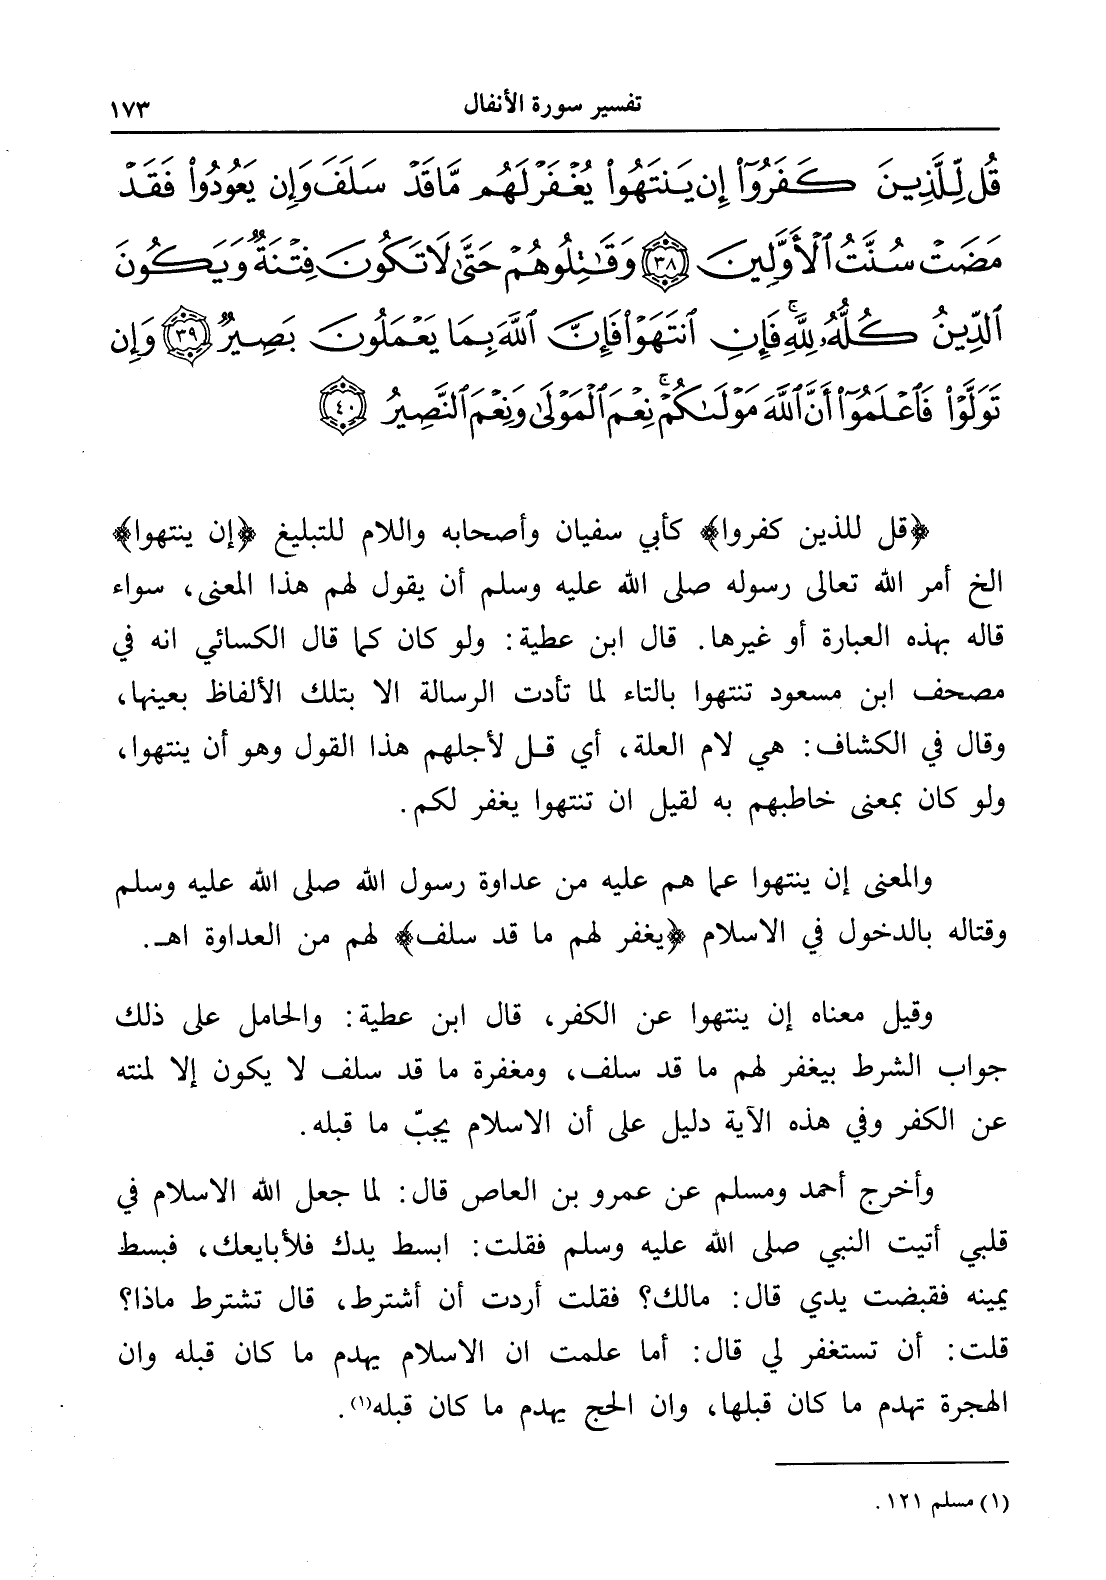 تفسير سورة الأنفال ١٧٣
قُل لِّلَّذِينَ كَفَرُوٓا۟ إِن يَنتَهُوا۟ يُغْفَرْ لَهُم مَّا قَدْ سَلَفَ وَإِن يَعُودُوا۟ فَقَدْ
مَضَتْ سُنَّتُ ٱلْأَوَّلِينَ ٣٨ وَقَٰتِلُوهُمْ حَتَّىٰ لَا تَكُونَ فِتْنَةٌ وَيَكُونَ
ٱلدِّينُ كُلُّهُۥ لِلَّهِ ۚ فَإِنِ ٱنتَهَوْا۟ فَإِنَّ ٱللَّهَ بِمَا يَعْمَلُونَ بَصِيرٌ ٣٩ وَإِن
تَوَلَّوْا۟ فَٱعْلَمُوٓا۟ أَنَّ ٱللَّهَ مَوْلَىٰكُمْ ۚ نِعْمَ ٱلْمَوْلَىٰ وَنِعْمَ ٱلنَّصِيرُ ٤٠
﴿قل للذين كفروا﴾ كأبي سفيان وأصحابه واللام للتبليغ ﴿إن ينتهوا﴾
الخ أمر الله تعالى رسوله صلى الله عليه وسلم أن يقول لهم هذا المعنى، سواء
قاله بهذه العبارة أو غيرها. قال ابن عطية: ولو كان كما قال الكسائي انه في
مصحف ابن مسعود تنتهوا بالتاء لما تأدت الرسالة الا بتلك الألفاظ بعينها،
وقال في الكشاف: هي لام العلة، أي قل لأجلهم هذا القول وهو أن ينتهوا،
ولو كان بمعنى خاطبهم به لقيل ان تنتهوا يغفر لكم.
والمعنى إن ينتهوا عما هم عليه من عداوة رسول الله صلى الله عليه وسلم
وقتاله بالدخول في الاسلام ﴿يغفر لهم ما قد سلف﴾ لهم من العداوة اهـ.
وقيل معناه إن ينتهوا عن الكفر، قال ابن عطية: والحامل على ذلك
جواب الشرط بيغفر لهم ما قد سلف، ومغفرة ما قد سلف لا يكون إلا لمنته
عن الكفر وفي هذه الآية دليل على أن الاسلام يجبّ ما قبله.
وأخرج أحمد ومسلم عن عمرو بن العاص قال: لما جعل الله الاسلام في
قلبي أتيت النبي صلى الله عليه وسلم فقلت: ابسط يدك فلأبايعك، فبسط
يمينه فقبضت يدي قال: مالك؟ فقلت أردت أن أشترط، قال تشترط ماذا؟
قلت: أن تستغفر لي قال: أما علمت ان الاسلام يهدم ما كان قبله وان
الهجرة تهدم ما كان قبلها، وان الحج يهدم ما كان قبله(١).
(١) مسلم ١٢١.